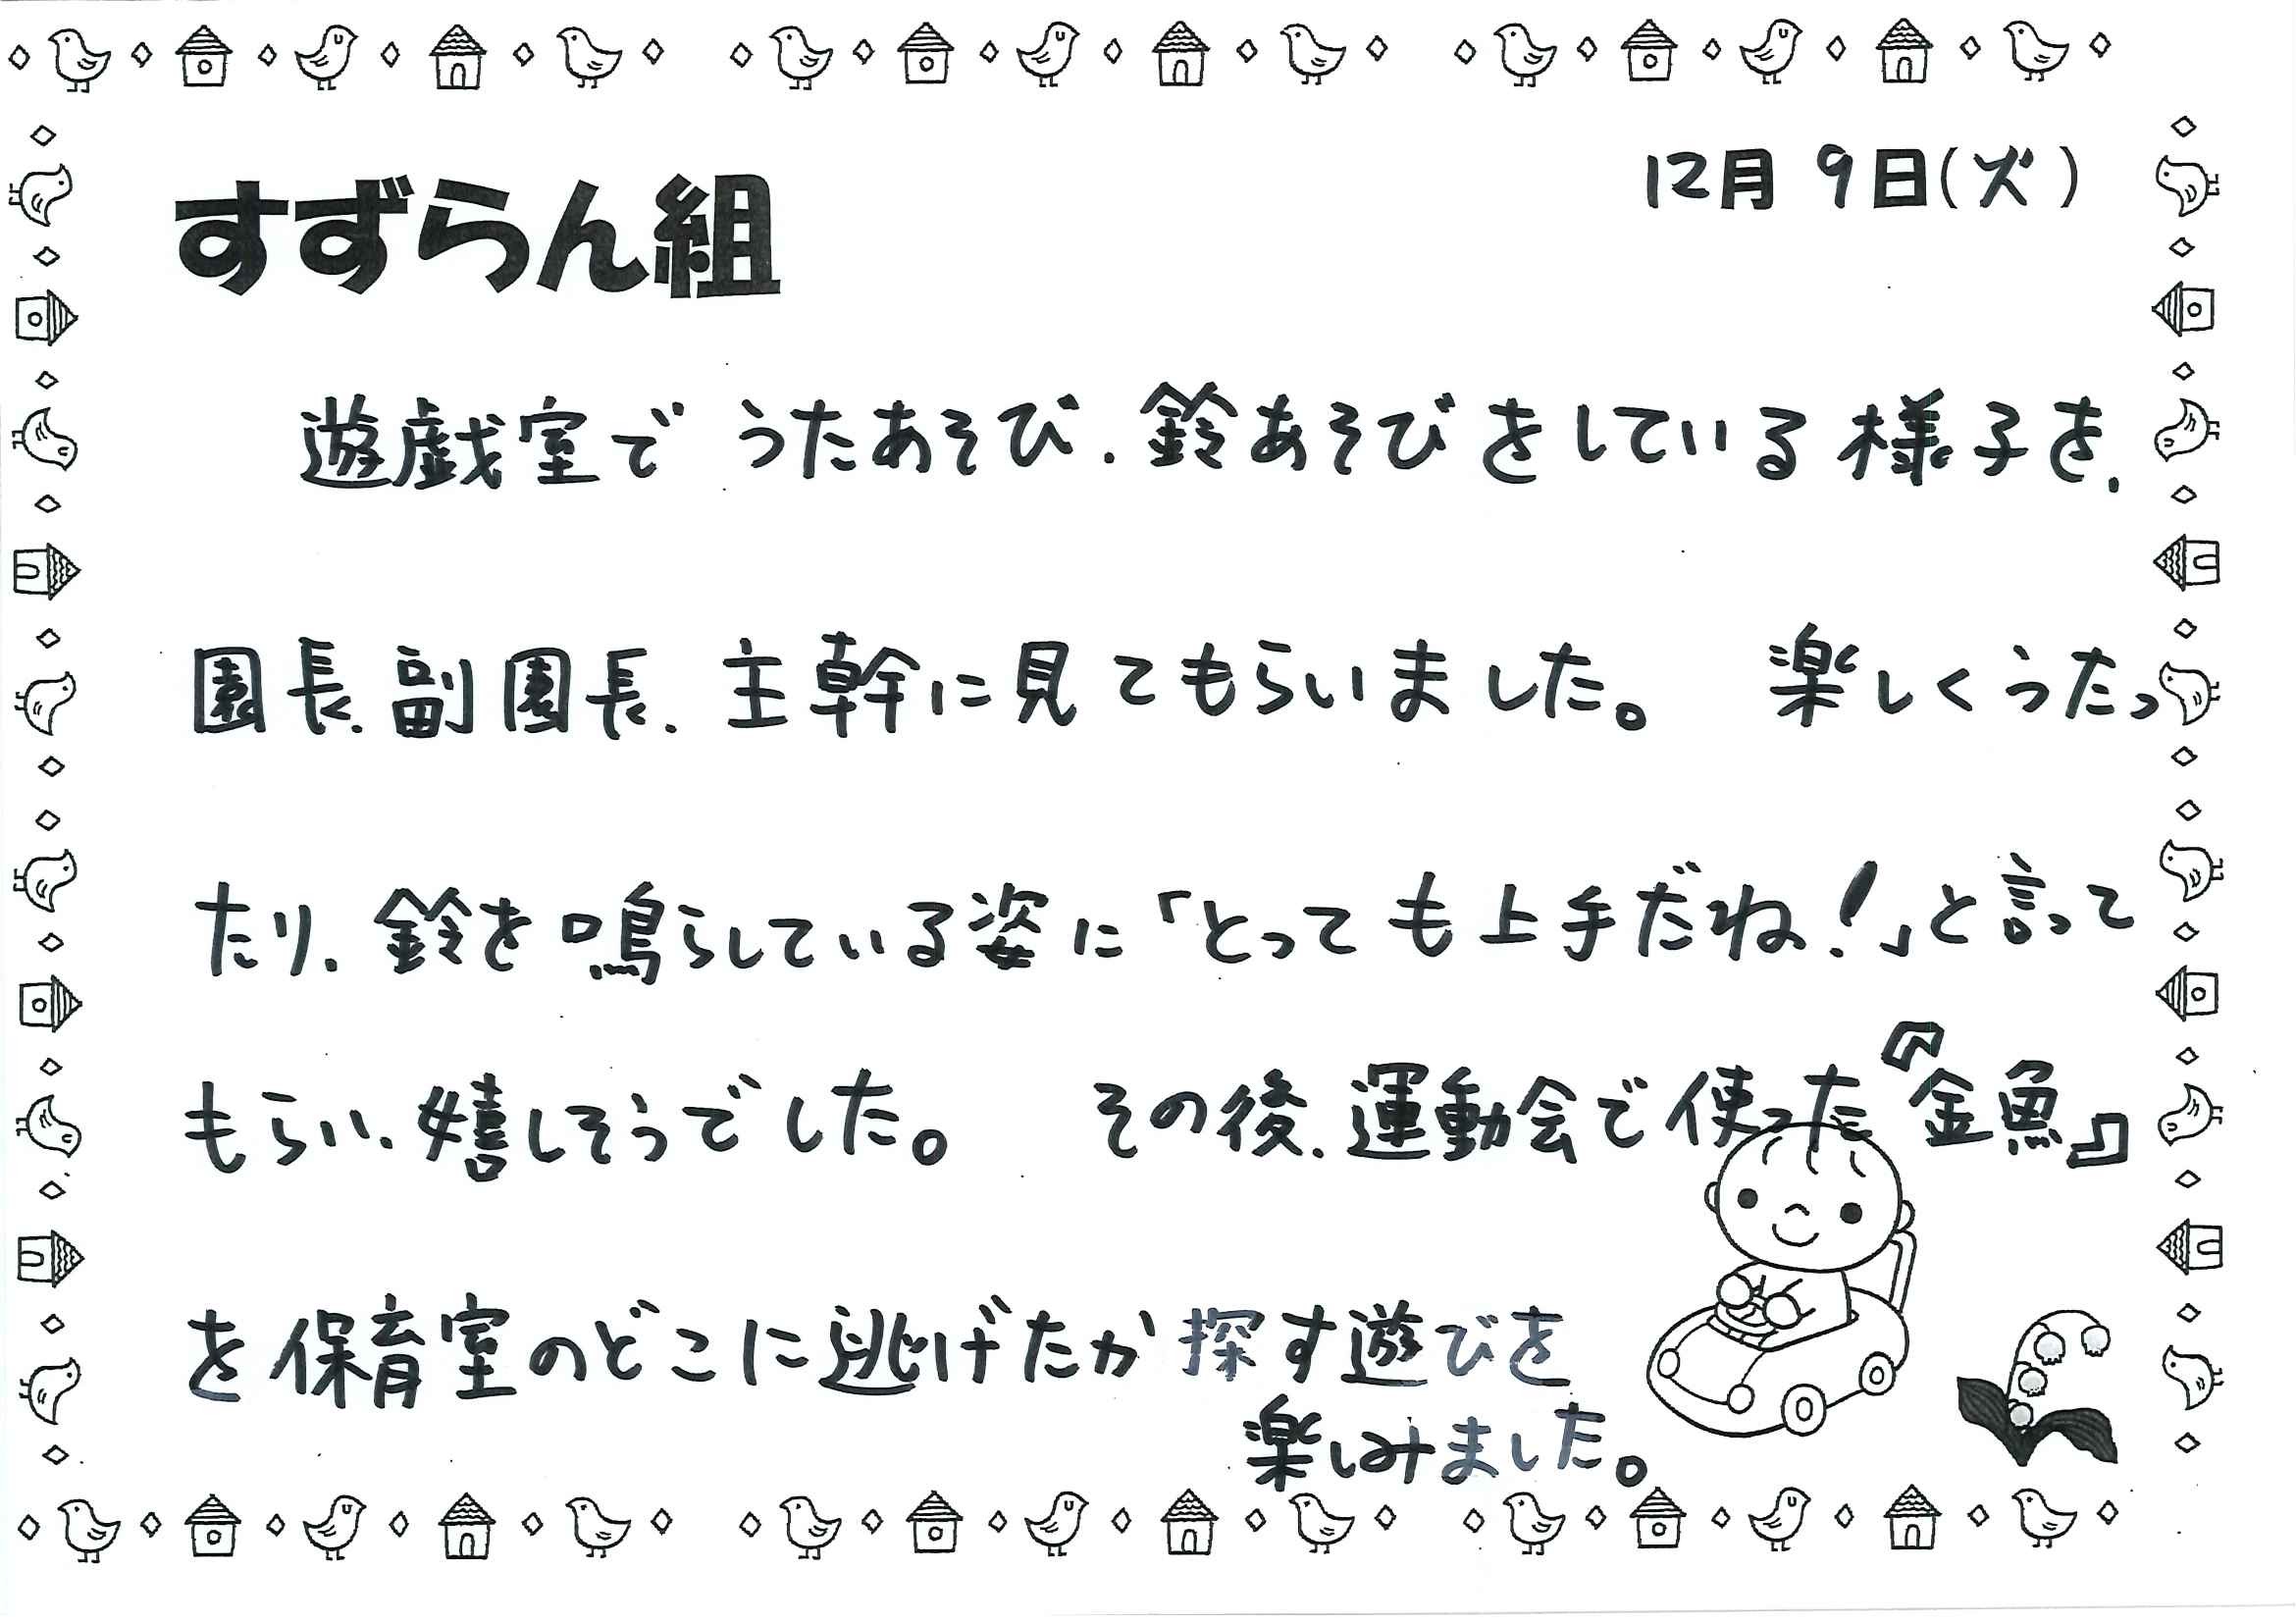 12月 9日(火)
すずらん組
遊戯室で うたあそび、鈴あそびをしている様子を、
園長、副園長、主幹に見てもらいました。 楽しくうたっ
たり、鈴を鳴らしている姿に「とっても上手だね!」と言って
もらい、嬉しそうでした。 その後、運動会で使った『金魚』
を保育室のどこに逃げたか探す遊びを
楽しみました。